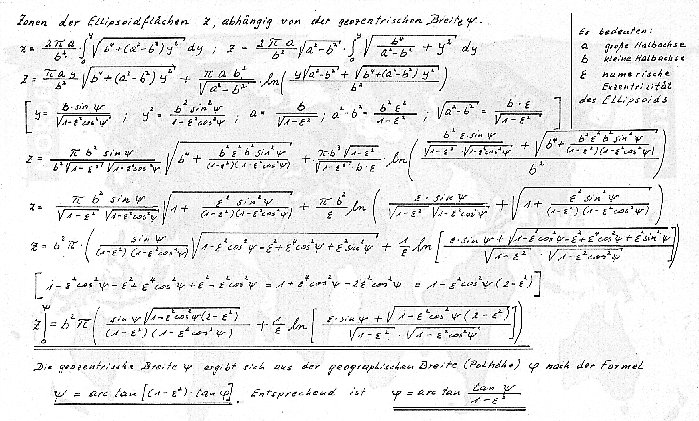 Zonen der Ellipsoidflächen Z, abhängig von der geozentrischen Breite ψ.
Z = 2πa/b² · ∫₀^y √(b⁴+(a²-b²)y²) dy ; Z = 2πa/b² √(a²-b²) · ∫₀^y √(b⁴/(a²-b²) + y²) dy
Es bedeuten:
a große Halbachse
b kleine Halbachse
ε numerische
Exzentrizität
des Ellipsoids
Z = πay/b² √(b⁴+(a²-b²)y²) + πab²/√(a²-b²) · ln( (y√(a²-b²) + √(b⁴+(a²-b²)y²))/b² )
[ y = b·sinψ/√(1-ε²cos²ψ) ; y² = b²sin²ψ/(1-ε²cos²ψ) ; a = b/√(1-ε²) ; a²-b² = b²ε²/(1-ε²) ; √(a²-b²) = b·ε/√(1-ε²) ]
Z = πb²sinψ/(b²√(1-ε²)√(1-ε²cos²ψ)) √(b⁴ + b²ε²b²sin²ψ/((1-ε²)(1-ε²cos²ψ))) + π·b³√(1-ε²)/(√(1-ε²)·b·ε) ln( (b²ε·sinψ/(√(1-ε²)√(1-ε²cos²ψ)) + √(b⁴ + b²ε²b²sin²ψ/((1-ε²)(1-ε²cos²ψ))))/b² )
Z = πb²sinψ/(√(1-ε²)√(1-ε²cos²ψ)) √(1 + ε²sin²ψ/((1-ε²)(1-ε²cos²ψ))) + πb²/ε ln( ε·sinψ/(√(1-ε²)√(1-ε²cos²ψ)) + √(1 + ε²sin²ψ/((1-ε²)(1-ε²cos²ψ))) )
Z = b²π·( sinψ/((1-ε²)(1-ε²cos²ψ)) √(1-ε²cos²ψ-ε²+ε⁴cos²ψ+ε²sin²ψ) + 1/ε ln[ (ε·sinψ + √(1-ε²cos²ψ-ε²+ε⁴cos²ψ+ε²sin²ψ))/(√(1-ε²)·√(1-ε²cos²ψ)) ] )
[ 1-ε²cos²ψ-ε²+ε⁴cos²ψ+ε²-ε²cos²ψ = 1+ε⁴cos²ψ-2ε²cos²ψ = 1-ε²cos²ψ(2-ε²) ]
Z|₀^ψ = b²π( sinψ√(1-ε²cos²ψ(2-ε²))/((1-ε²)(1-ε²cos²ψ)) + 1/ε ln[ (ε·sinψ + √(1-ε²cos²ψ(2-ε²)))/(√(1-ε²)·√(1-ε²cos²ψ)) ] )
Die geozentrische Breite ψ ergibt sich aus der geographischen Breite (Polhöhe) φ nach der Formel
ψ = arc tan[(1-ε²)·tanφ]. Entsprechend ist φ = arc tan tanψ/(1-ε²)